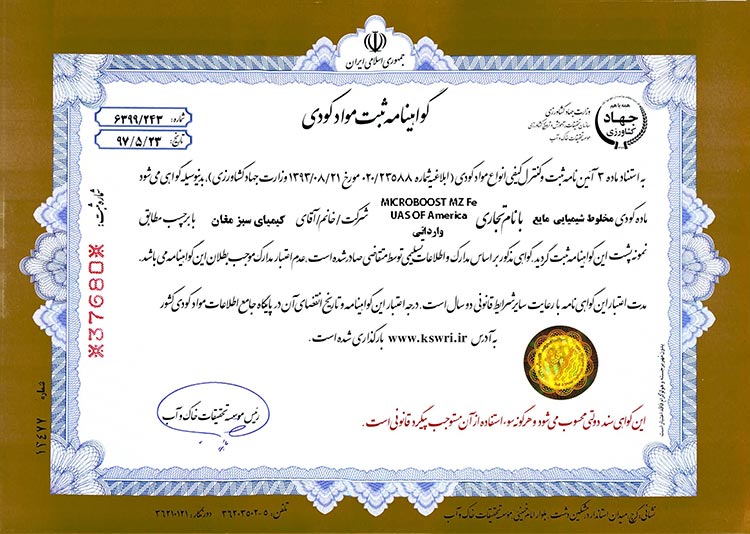 جمهوری اسلامی ایران
گواهینامه ثبت مواد کودی
شماره: ۶۳۹۹/۲۴۳
تاریخ: ۹۷/۵/۲۳
همه با هم
جهاد
کشاورزی
وزارت جهاد کشاورزی
سازمان تحقیقات، آموزش و ترویج کشاورزی
موسسه تحقیقات خاک و آب
به استناد ماده ۳ آیین نامه ثبت و کنترل کیفی انواع مواد کودی (ابلاغیه شماره ۰۲۰/۲۳۵۸۸ مورخ ۱۳۹۳/۰۸/۲۱ وزارت جهاد کشاورزی)، بدینوسیله گواهی می شود
ماده کودی مخلوط شیمیایی مایع با نام تجاری MICROBOOST MZ Fe UAS OF America وارداتی شرکت/خانم/آقای کیمیای سبز مغان با برچسب مطابق
نمونه پشت این گواهینامه ثبت گردید. گواهی مذکور بر اساس مدارک و اطلاعات تسلیمی توسط متقاضی صادر شده است. عدم اعتبار مدارک موجب بطلان این گواهینامه می باشد.
مدت اعتبار این گواهی نامه با رعایت سایر شرایط قانونی دو سال است. درجه اعتبار این گواهینامه و تاریخ انقضای آن در پایگاه جامع اطلاعات مواد کودی کشور
به آدرس www.kswri.ir بارگذاری شده است.
رئیس موسسه تحقیقات خاک و آب
این گواهی سند دولتی محسوب می شود و هرگونه سوء استفاده از آن مستوجب پیگرد قانونی است.
شماره ثبت:
※37680※
شماره ۱۲۴۷۷
بدون مهر برجسته و هولوگرام فاقد اعتبار است
نشانی: کرج، میدان استاندارد، مشکین دشت، بلوار امام خمینی، موسسه تحقیقات خاک و آب
تلفن: ۵-۳۶۲۰۳۵۰۲ دورنگار: ۳۶۲۱۰۱۲۱